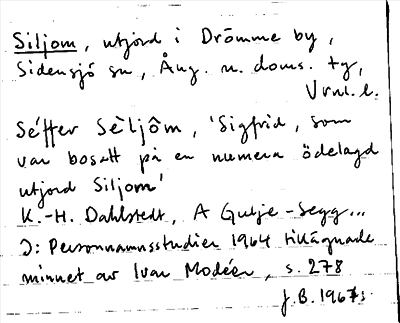 Siljom, utjord i Drömme by,
Sidensjö sn, Ång. n. doms. tg,
Vrnl. l.
Sé'ffer Sèljôm, 'Sigfrid, som
var bosatt på en numera ödelagd
utjord Siljom'
K.-H. Dahlstedt, A Gulje-Segg...
I: Personnamnsstudier 1964 tillägnade
minnet av Ivar Modéer, s. 278
J.B. 1967